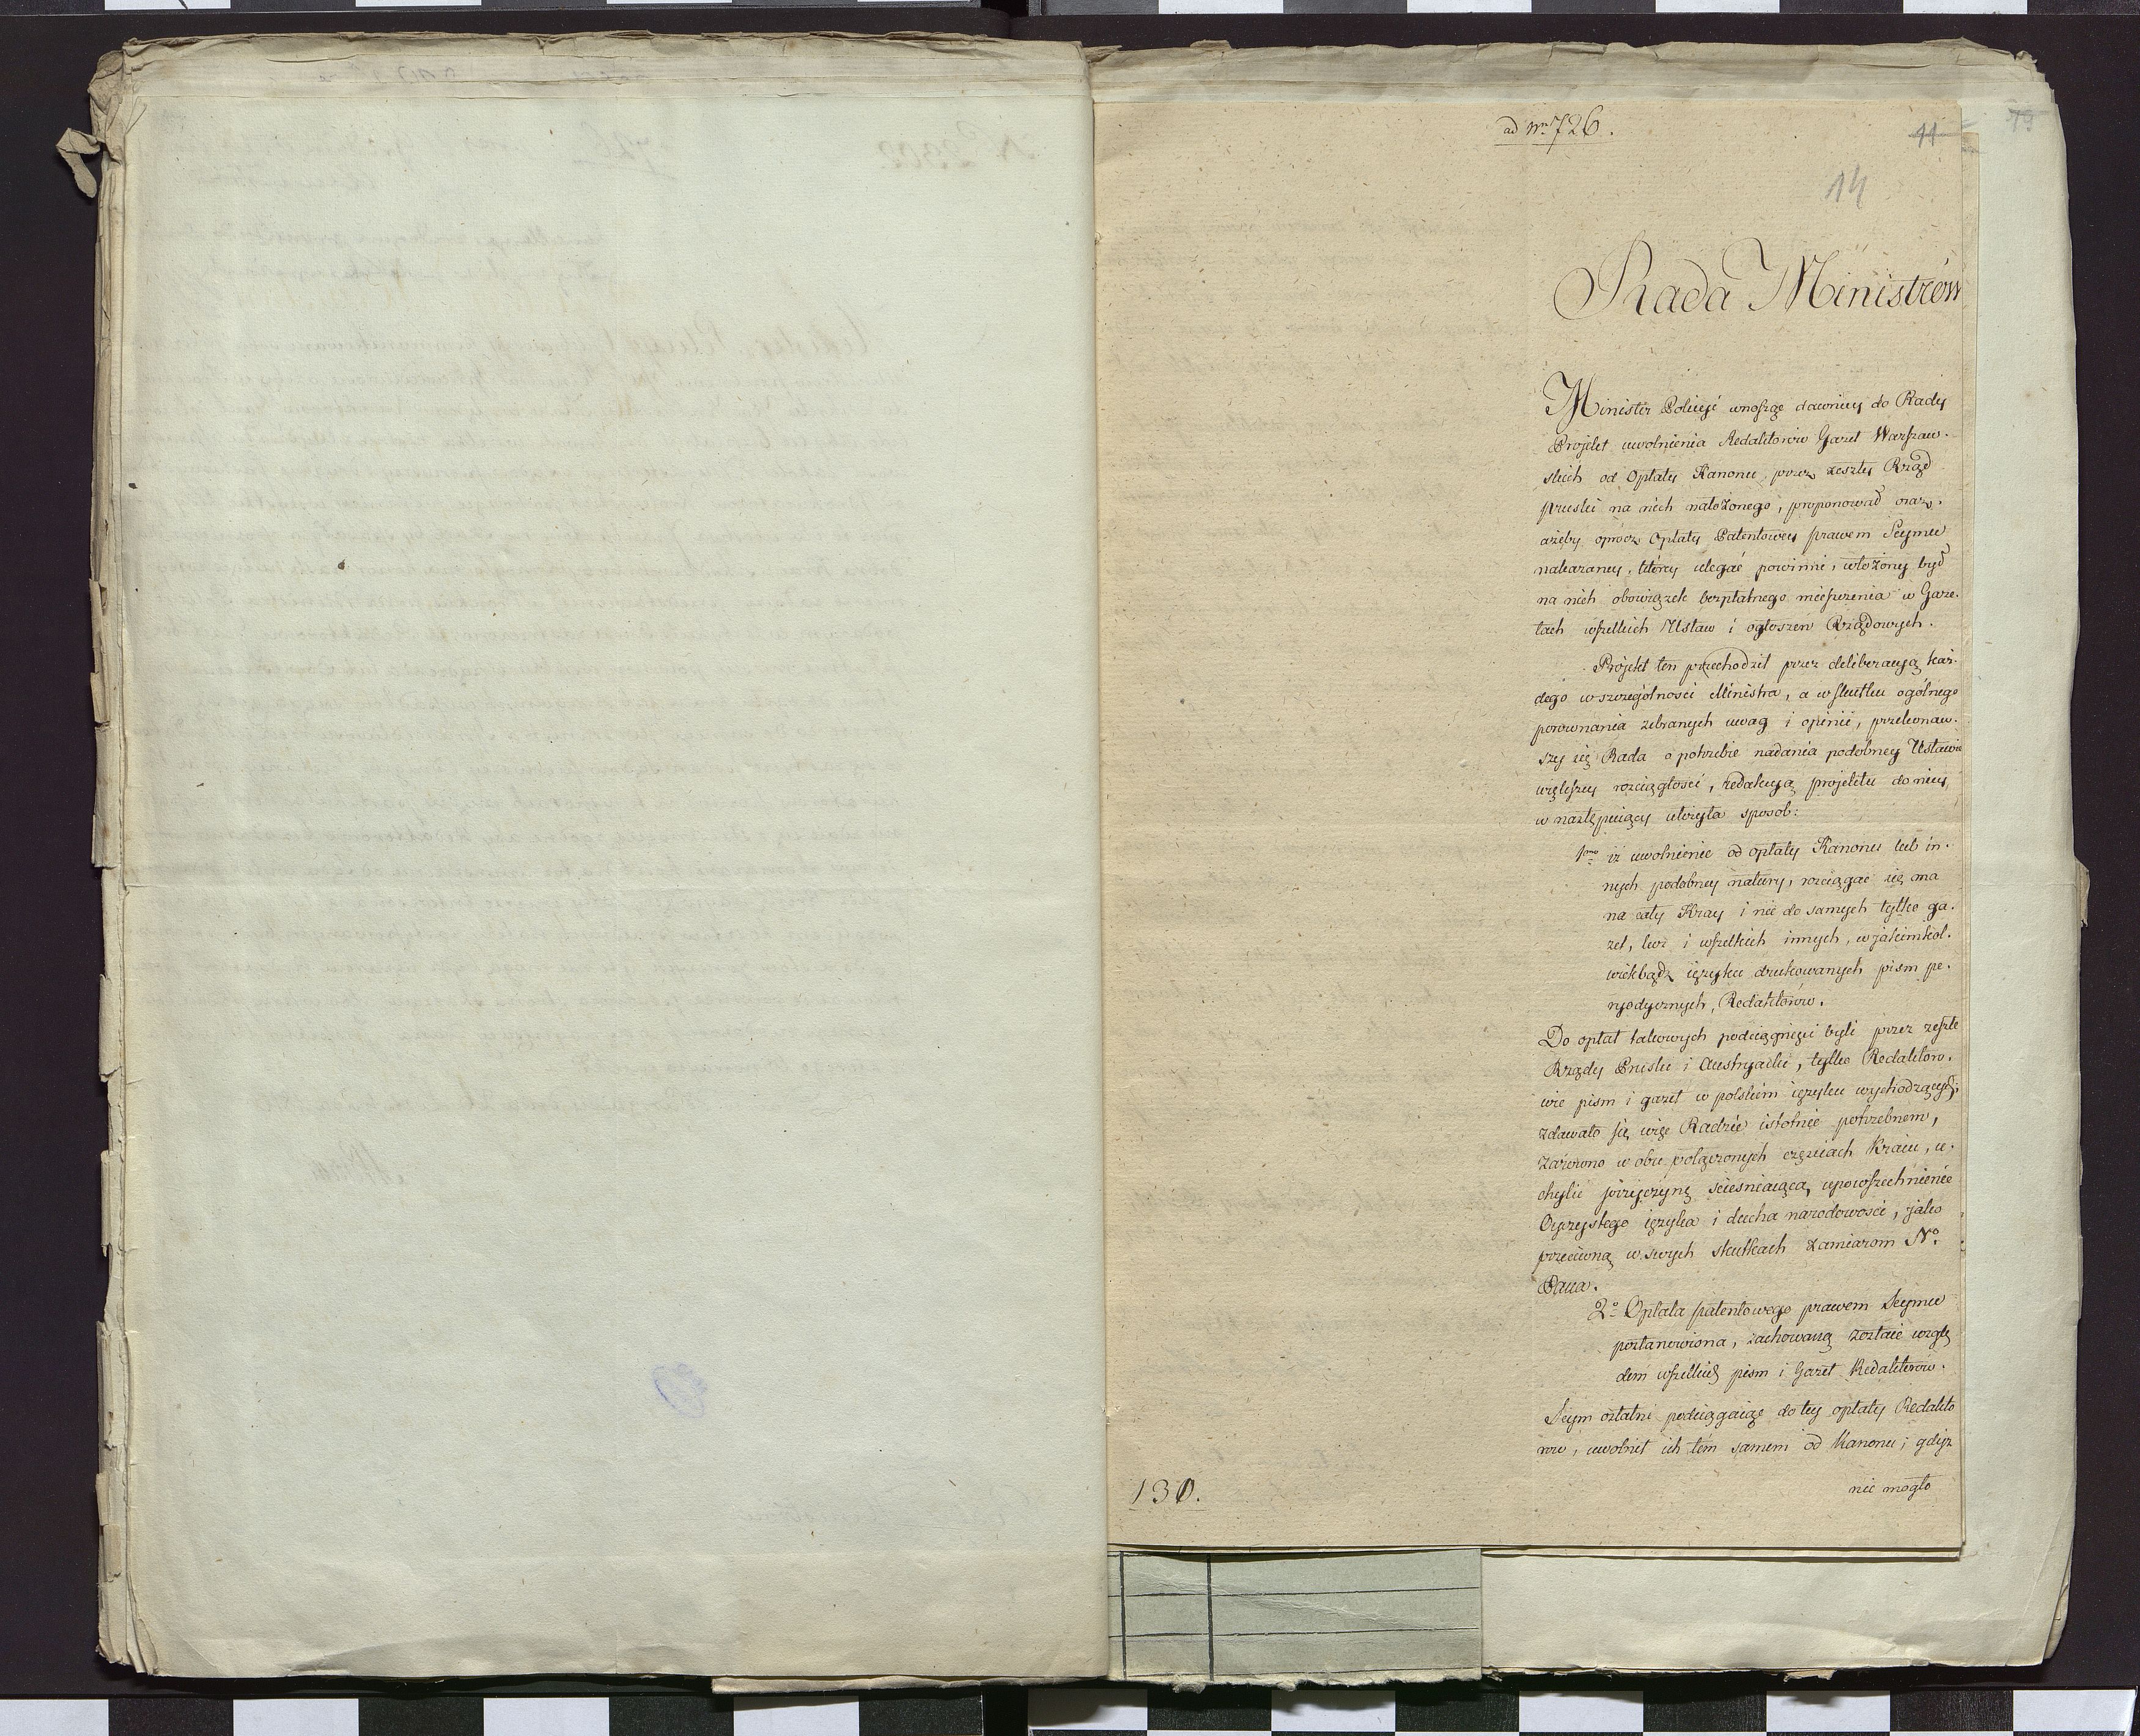 ad Nrm 726.
11
79
14
Rada Ministrów
Minister Policyi wnosząc dawniey do Rady
Projekt uwolnienia Redaktorów Gazet Warszaw-
skich od Opłaty Kanonu, przez zeszły Rząd
pruski na nich nałożonego, proponował oraz,
ażeby oprócz Opłaty Patentowey prawem Seymu
nakazaney, którey ulegać powinni, włożony był
na nich obowiązek bezpłatnego mieszczenia w Gaze-
tach wszelkich Ustaw i ogłoszeń Rządowych.
Projekt ten przechodził przez deliberacyą każ-
dego w szczególności Ministra, a w skutku ogólnego
porównania zebranych uwag i opinii, przekonaw-
szy się Rada o potrzebie nadania podobney Ustawie
większey rozciągłości, redakcyą projektu do niey
w następuiący ułożyła sposób:
1mo iż uwolnienie od opłaty Kanonu lub in-
nych podobney natury, rozciągać się ma
na cały Kray i nie do samych tylko ga-
zet, lecz i wszelkich innych, w jakimkol-
wiekbądź ięzyku drukowanych pism pe-
ryodycznych, Redaktorów.
Do opłat takowych podciągnięci byli przez zeszłe
Rządy Pruski i Austryacki, tylko Redaktoro-
wie pism i gazet w polskim ięzyku wychodzących;
zdawało się więc Radzie istotnie potrzebnem,
zarówno w obu połączonych częściach Kraiu, u-
chylić przyczynę ścieśniaiącą upowszechnienie
Oyczystego ięzyka i ducha narodowości, jako
przeciwną w swych skutkach zamiarom No
Pana.
2o Opłata patentowego prawem Seymu
postanowiona, zachowaną zostaie wzglę
dem wszelkich pism i Gazet Redaktorów.
Seym ostatni podciągaiąc do tey opłaty Redakto
rów, uwolnił ich tém samem od Kanonu; gdyż
nie mogło
130.